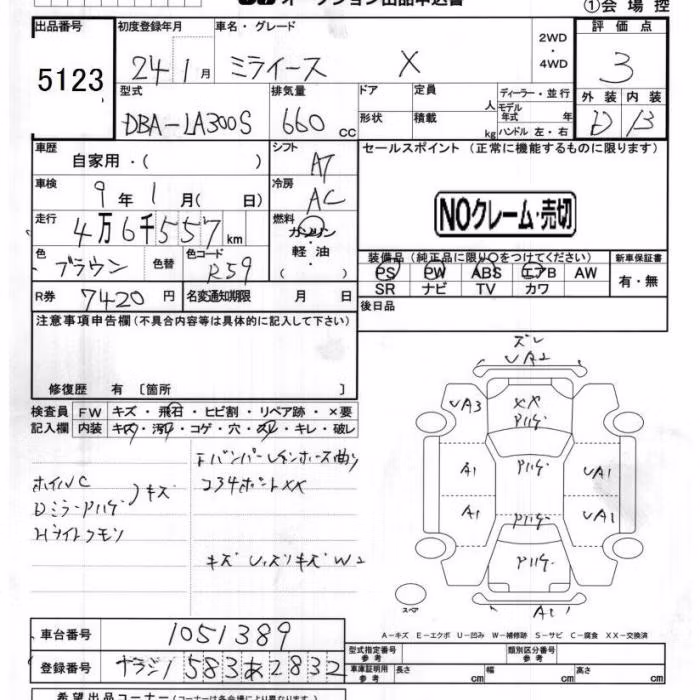 オークション出品申込書
①会場控
出品番号
5123
初度登録年月
24 1月
車名・グレード
ミライース X
2WD
・
4WD
評価点
3
外装 内装
D B
型式
DBA-LA300S
排気量
660 cc
ドア
定員
人
形状
積載
kg
ディーラー・並行
モデル年式 年
ハンドル 左・右
車歴
自家用・( )
シフト
AT
車検
9年1月( 日)
冷房
AC
走行
4万6千557 km
燃料
ガソリン
・
軽油
・
( )
色
ブラウン
色替
色コード
R59
R券 7420円
名変通知期限 月 日
セールスポイント(正常に機能するものに限ります)
NOクレーム・売切
装備品(純正品に限り○をつけてください)
PS PW ABS エアB AW
SR ナビ TV カワ
新車保証書
有・無
後日品
注意事項申告欄(不具合内容等は具体的に記入して下さい)
修復歴 有 [箇所 ]
検査員記入欄
FW キズ・飛石・ヒビ割・リペア跡・×要
内装 キズ・汚れ・コゲ・穴・スレ・キレ・破レ
ホイルC
DミラーPハゲ
キズ
Hライトクモリ
XX
キズ U,スリキズ W2
ズレ
UA2
UA3
XX
Pハゲ
A1
Pハゲ
UA1
A1
Pハゲ
UA1
Pハゲ
A1
スペア
A-キズ E-エクボ U-凹み W-補修跡 S-サビ C-腐食 XX-交換済
車台番号 1051389
登録番号 583あ2832
型式指定番号
参考
類別区分番号
参考
車庫証明用
参考
長さ cm
幅 cm
高さ cm
希望出品コーナー(コーナーは各会場により異なります)